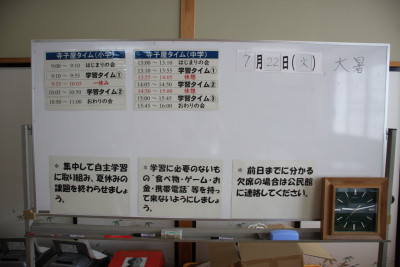 寺子屋タイム(小学)
9:00 ～ 9:10 はじまりの会
9:10 ～ 9:55 学習タイム①
9:55 ～ 10:05 休み
10:05 ～ 10:50 学習タイム②
10:50 ～ おわりの会
寺子屋タイム(中学)
13:00 ～ 13:10 はじまりの会
学習タイム①
休憩
学習タイム②
休憩
学習タイム③
15:45 ～ 16:00 おわりの会
7月22日(火)
大暑
* 集中して自主学習
に取り組み、夏休みの
課題を終わらせましょ
う。
* 学習に必要のないも
の“食べ物・ゲーム・お
金・携帯電話”等を持っ
て来ないようにしましょ
う。
* 前日までに分かる
欠席の場合は公民館
に連絡してください。